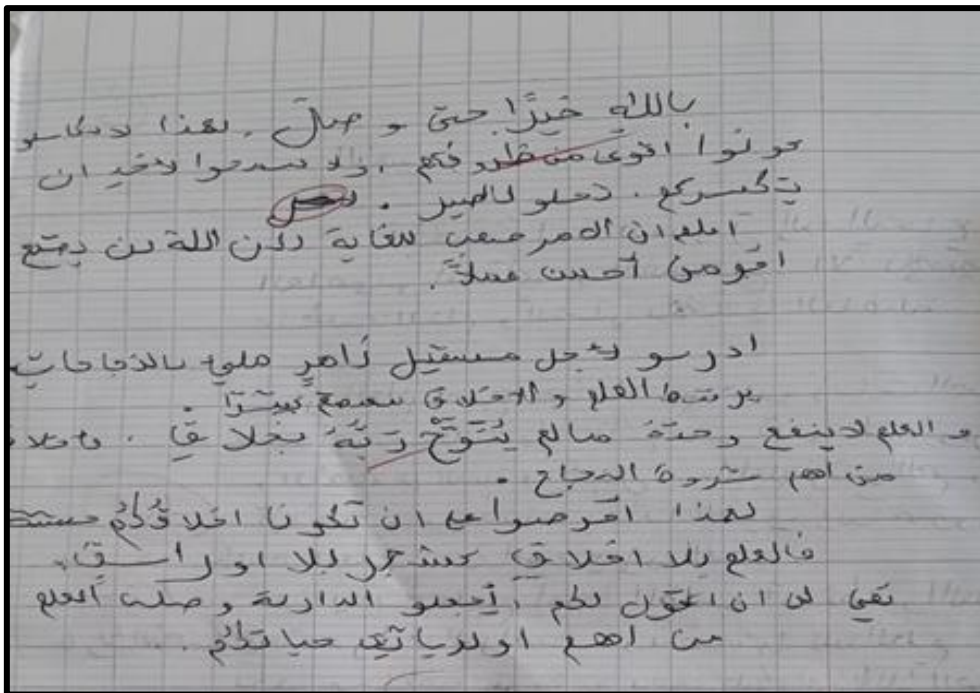 بالله خيرًا حتى و صال . لهذا
كونوا اقوى من ظروفكم . ولا تسمحوا لاخير ان
يكسركم . تحلو بالصبر .
اعلم ان الامر صعب للغاية لكن الله لن يضع
اقومن أحسن عملاً .
ادرسو لأجل مستقبل زاهرٍ مليء بالنجاحات
العلم و الاخلاق
و العلم لاينفع وحدة مالم يُتَوَّجْ رَبَّهُ بخلاقٍ .
من أهم شروط النجاح .
لهذا احرصوا على ان تكونا اخلاقكم
فالعلم بلا اخلاقٍ كشجر بلا اوراسق .
بقي لي ان اقول لكم اجعلو الدارسة و صلب العلم
من اهم اولوياتي حياتكم .